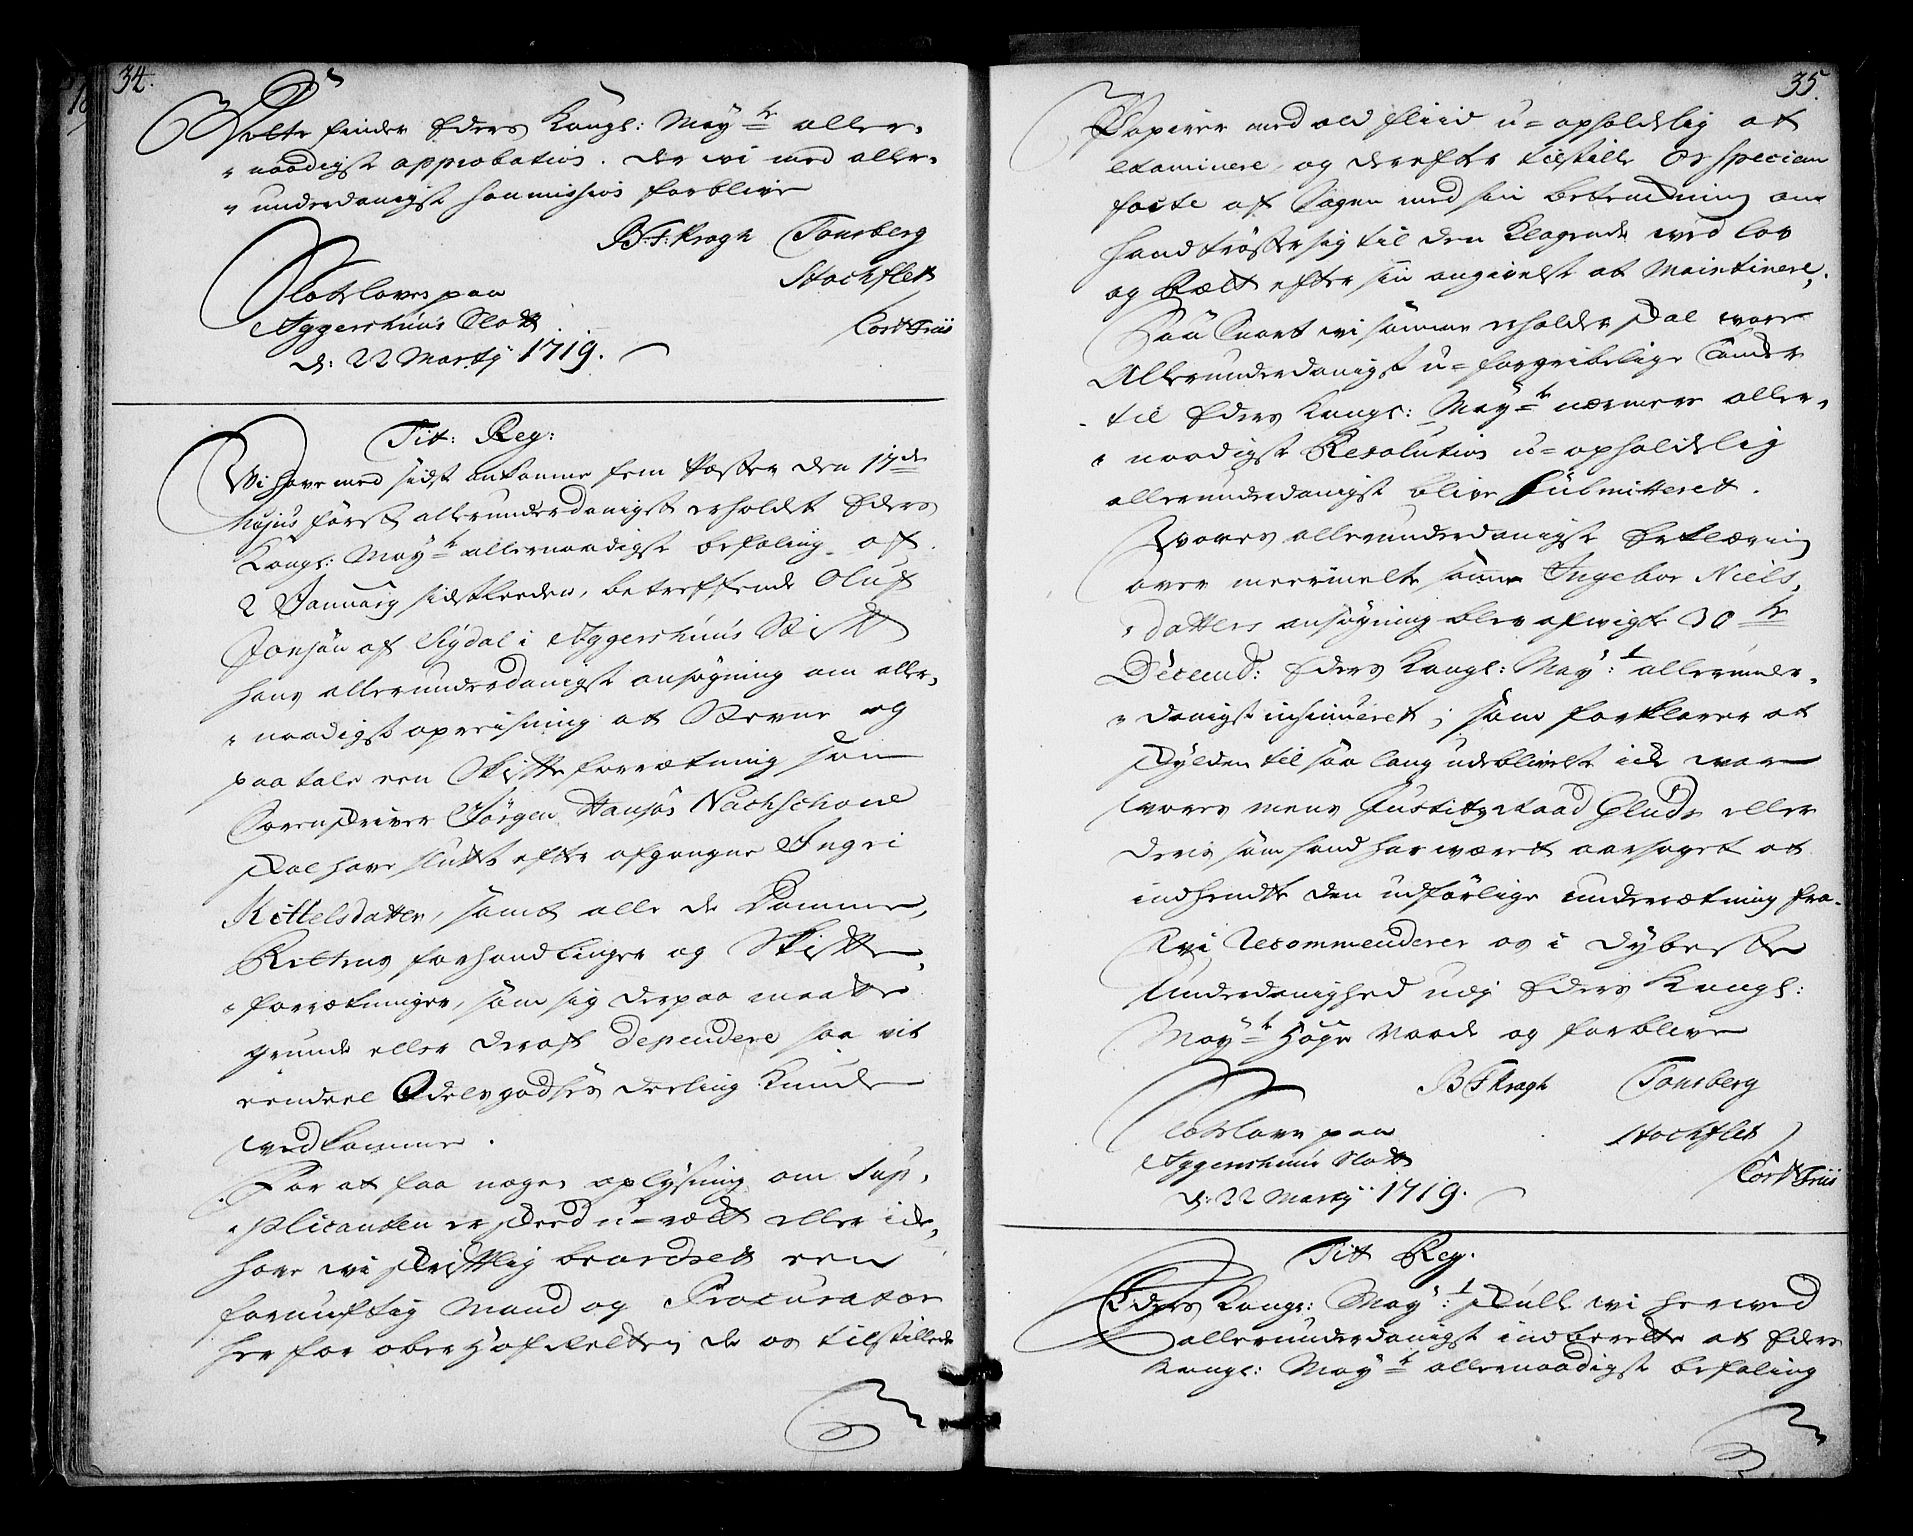 34.
Motte finder Eders Kongl: May:tz aller,
naadigst approbation. Der wi med aller,
underdanigst soumission forblive
B: F: Kragh Tonsberg
Stochfleth
Cort Friis
Slotsloven paa
Aggershuus Slott
d: 22 Marty 1719.
Tit: Reg:
Wi have med sidst ankomne fem Poster den 17de
hujus först allerunderdanigst erholdet Eders
Kongl: May:tz allernaadigste befaling af
2 January sidstleeden, betreffende Oluf
Jonsön af Sigdal i Aggershuus Stift
hans allerunderdanigst ansögning om aller,
naadigst opreisning at Stevne og
paatale een Skifte forretning som
Sorenskriver Jörgen Hansön Nachschow
skal have sluttet efter afgangne Ingri
Kittelsdatter, samt alle de Domme,
Rettens forhandlinger og Skifte,
forretninger, som sig derpaa maatte
grunde eller deraf dependere saa vit
eendeel Odelsgodses deeling kunde
vedkomme.
For at faa nogen oplysning om Sup,
plicanten er skeed u-rett eller ide,
have wi skriftlig beordret een
fornuftig Mand og Procurator
her for ober Hof Retten, de os tilstillede
35.
Papirer med all fliid u-opholdelig at
examinere og derefter tilstille Os specian
facte af Sagen med sin betenckning om
hand tröster sig til den Klagende ved lov
og Rett efter sin angivelse at Maintinere,
Saa Snart wi samme erholder skal vore
Allerunderdanigst u-forgribelige tancker
til Eders Kongl: May:tz nærmere aller,
naadigst Resolution u-opholdelig
allerunderdanigst blive submitteret.
Vores allerunderdanigste Erklæring
over meermelte samme Ingebor Niels,
datters ansögning blev afvigte 30 te
Decemb: Eders Kongl: May:t allerunder,
danigst insinueret; som forklarer at
skylden til saa lang udeblivelse icke var
vores mens Justitz Raad Gluds eller
deris som hand har været aarsaget at
indhendte den udförlige underretning fra.
Wi recommenderer os i dybeste
Underdanighed udj Eders Kongl:
May:tz Höye Naade og forblive
B F Kragh Tonsberg
Stochfleth
Cort Friis
Slotsloven paa
Aggershuus Slott
d: 22 Marty 1719.
Tit Reg.
Eders Kongl: May:t skulle wi herved
allerunderdanigst indberette at Eders
Kongl: May:tz allernaadigst befaling